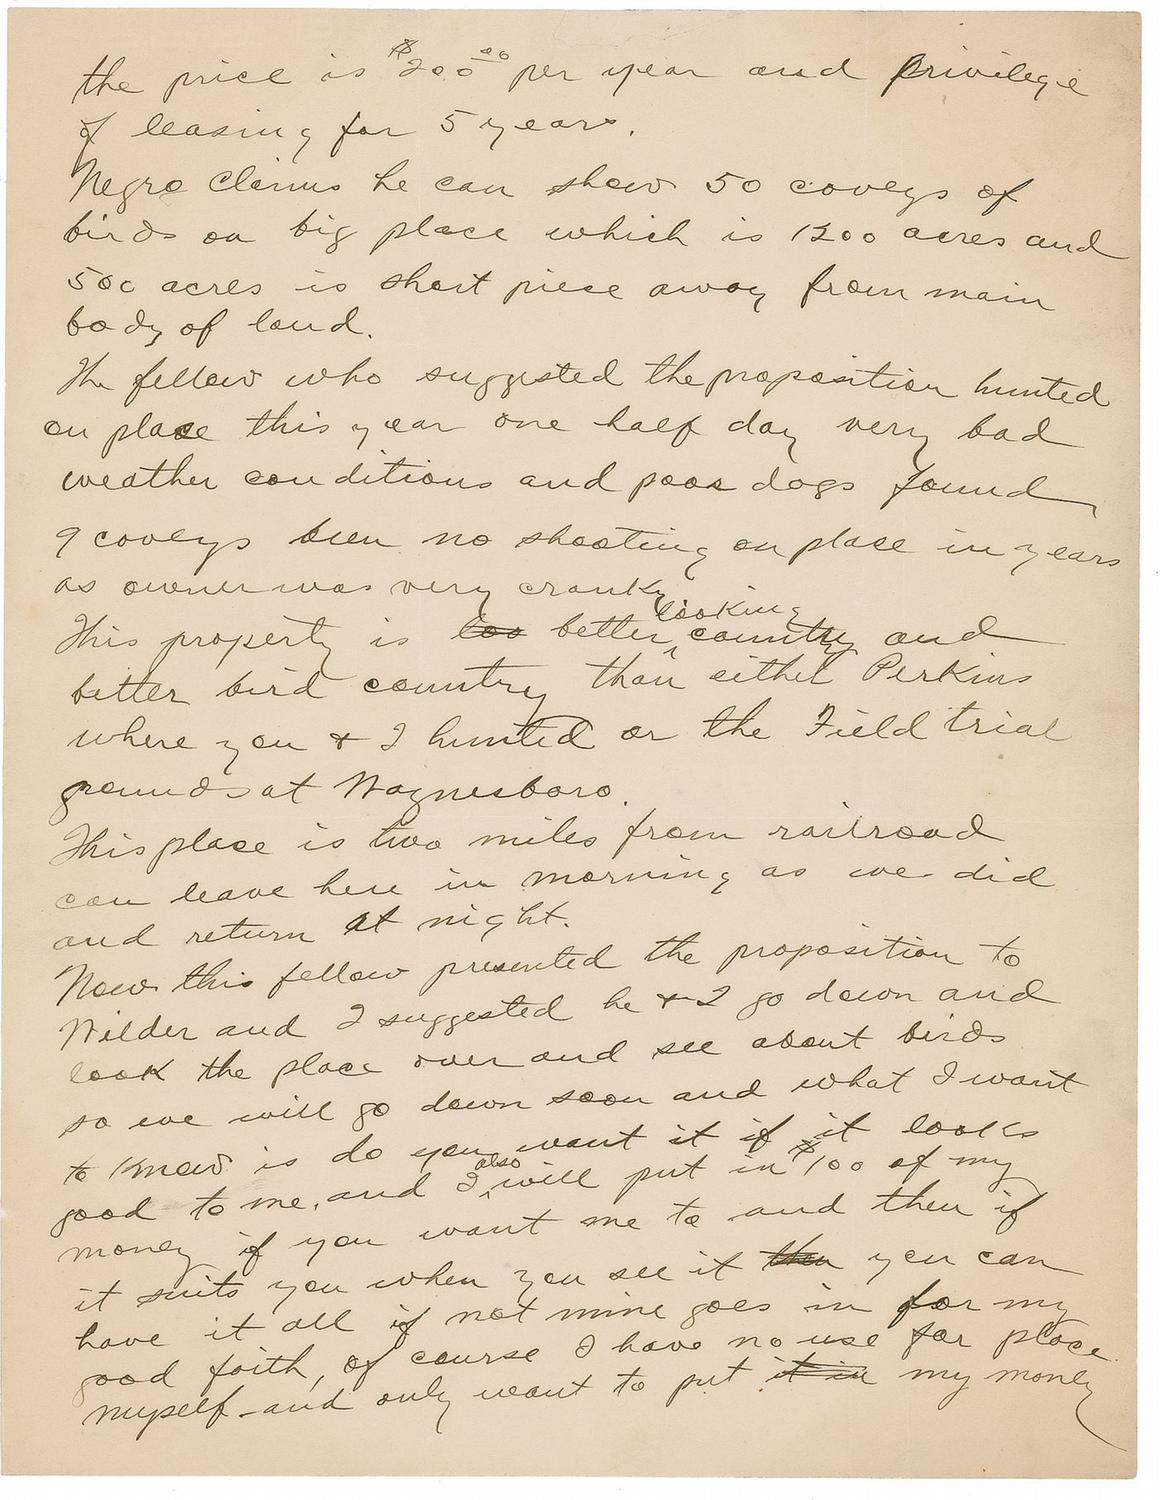 the price is $200.00 per year and privilege
of leasing for 5 years.
Negro claims he can show 50 coveys of
birds on big place which is 1200 acres and
500 acres is short piece away from main
body of land.
The fellow who suggested the proposition hunted
on place this year one half day very bad
weather conditions and poor dogs found
9 coveys been no shooting on place in years
as owner was very cranky
This property is too better looking country and
better bird country than either Perkins
where you & I hunted or the Field trial
grounds at Waynesboro.
This place is two miles from railroad
can leave here in morning as we did
and return at night.
Now this fellow presented the proposition to
Wilder and I suggested he & I go down and
look the place over and see about birds
so we will go down soon and what I want
to know is do you want it if it looks
good to me, and I also will put in $100 of my
money if you want me to and then if
it suits you when you see it then you can
have it all if not mine goes in for my
good faith, of course I have no use for place
myself - and only want to put it in my money